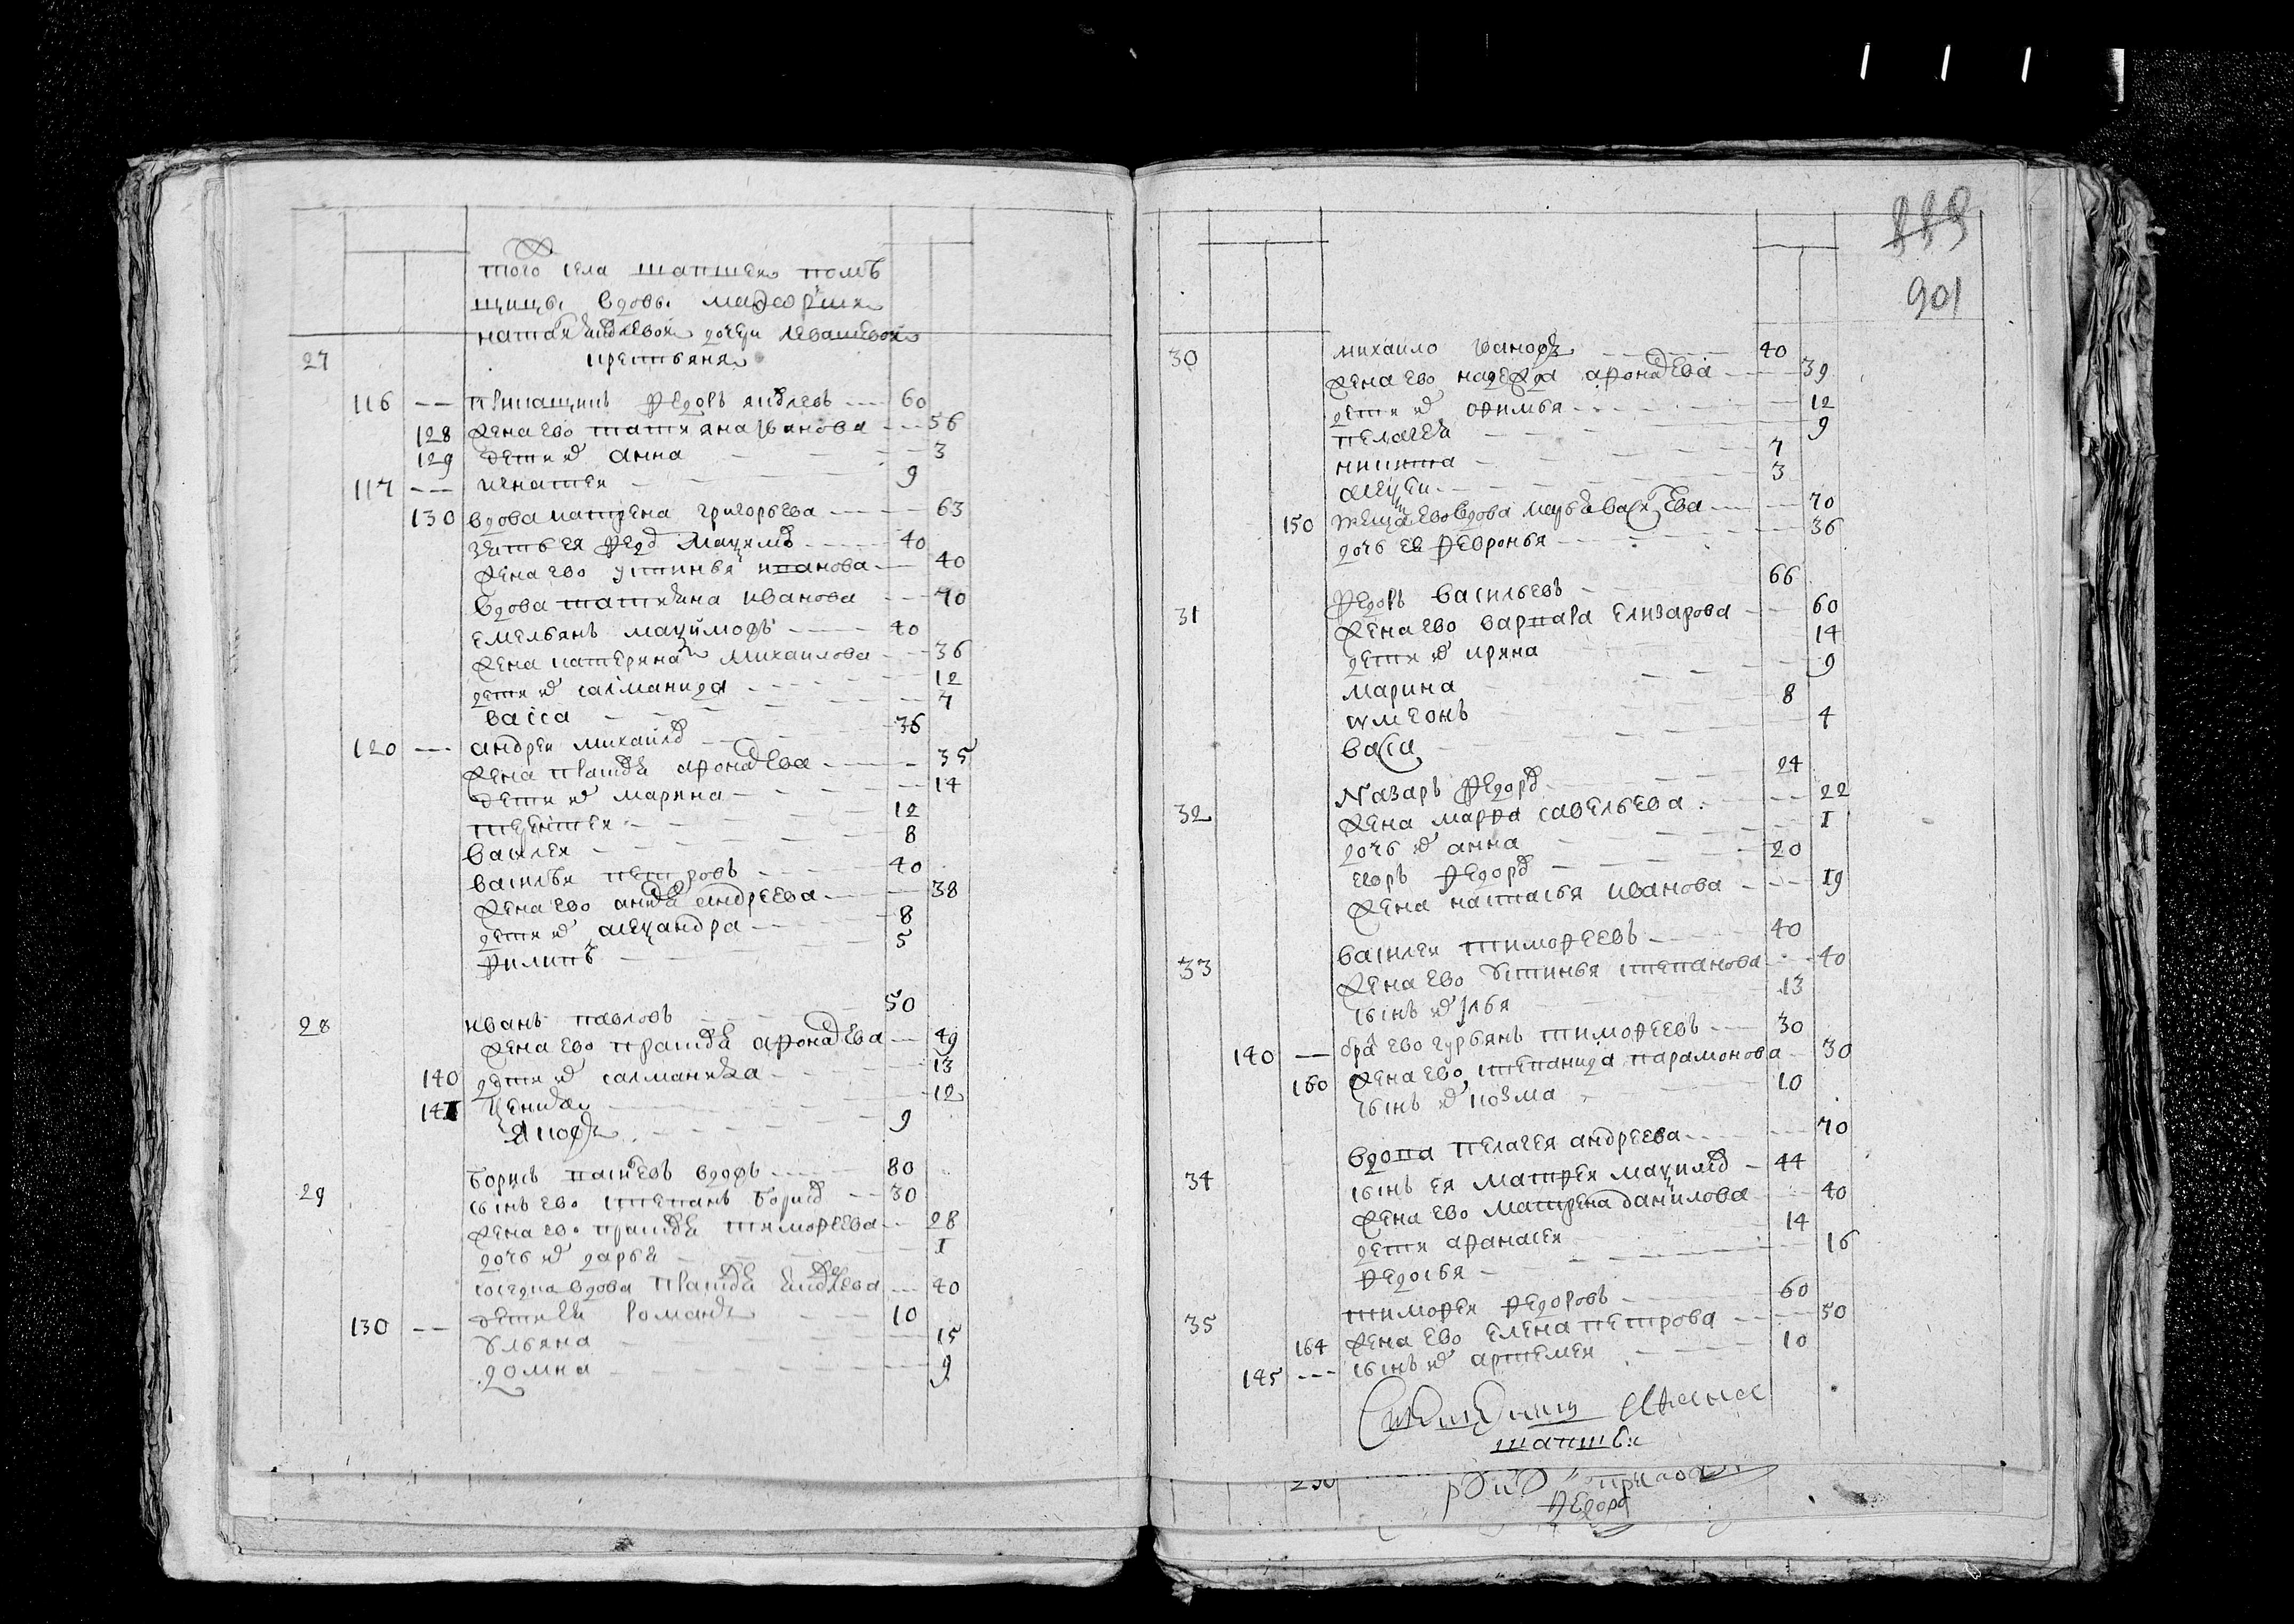 того села шапшеи помѣ
щицы вдовы маѳориши
дочери левашевои
крестьяня
27
116 --- прикащикъ ѳедоръ --- 60
128 жена ево татияна иванова --- 56
129 дети и анна 3
117 --- игнатеи 9
130 вдова матрена григорьева --- 63
зять ея ѳедо максимо --- 40
жена ево устинья иванова --- 40
вдова татияна иванова --- 70
емельянъ максимовъ --- 40
жена катерина михаилова --- 36
дети и саломанида --- 12
васса --- 7
120 --- андреи михаило --- 36
жена праско аѳонасева --- 35
дети и марина --- 14
терентеи --- 12
василеи --- 8
василеи петровъ --- 40
жена ево андреева --- 38
дети и алеѯандра --- 8
ѳилипъ --- 5
28 иванъ павловъ --- 50
жена ево праско аѳонасева --- 49
140 дети и саломанида --- 13
141 ѯения --- 12
яковъ --- 9
29 борисъ вдовъ --- 80
сынъ ево степанъ борисо --- 30
жена ево праско тимоѳеева --- 28
дочь и дарья --- 1
вдова праско --- 40
130 --- дети еи романъ --- 10
ульяна --- 15
домна --- 9
889
901
30 михаило ивановъ --- 40
жена ево надежда аѳонасева --- 39
дети и оѳимья --- 12
пелагея --- 9
никита --- 7
алеѯеи --- 3
150 теща ево вдова марья васильева --- 70
дочь ея ѳевронья --- 36
31 ѳедоръ васильевъ --- 66
жена ево варвара елизарова --- 60
дети и ирина --- 14
марина --- 9
симеонъ --- 8
васа --- 4
32 назаръ ѳедоро --- 24
жена марѳа савельева --- 22
дочь и анна --- 1
егоръ ѳедоро --- 20
жена настасья иванова --- 19
33 василеи тимоѳеевъ --- 40
жена ево устинья степанова --- 40
сынъ и илья --- 13
140 --- бра ево гурьянъ тимоѳеевъ --- 30
160 жена ево степанида парамонова --- 30
сынъ и козма --- 10
34 вдова пелагея андреева --- 70
сынъ ея матѳеи максимо --- 44
жена ево матрена данилова --- 40
дети аѳанасеи --- 14
ѳедосья --- 16
35 тимоѳеи ѳедоровъ --- 60
164 жена ево елена петрова --- 50
145 --- сынъ и артемеи --- 10
шапшеи
230
ѳедоро